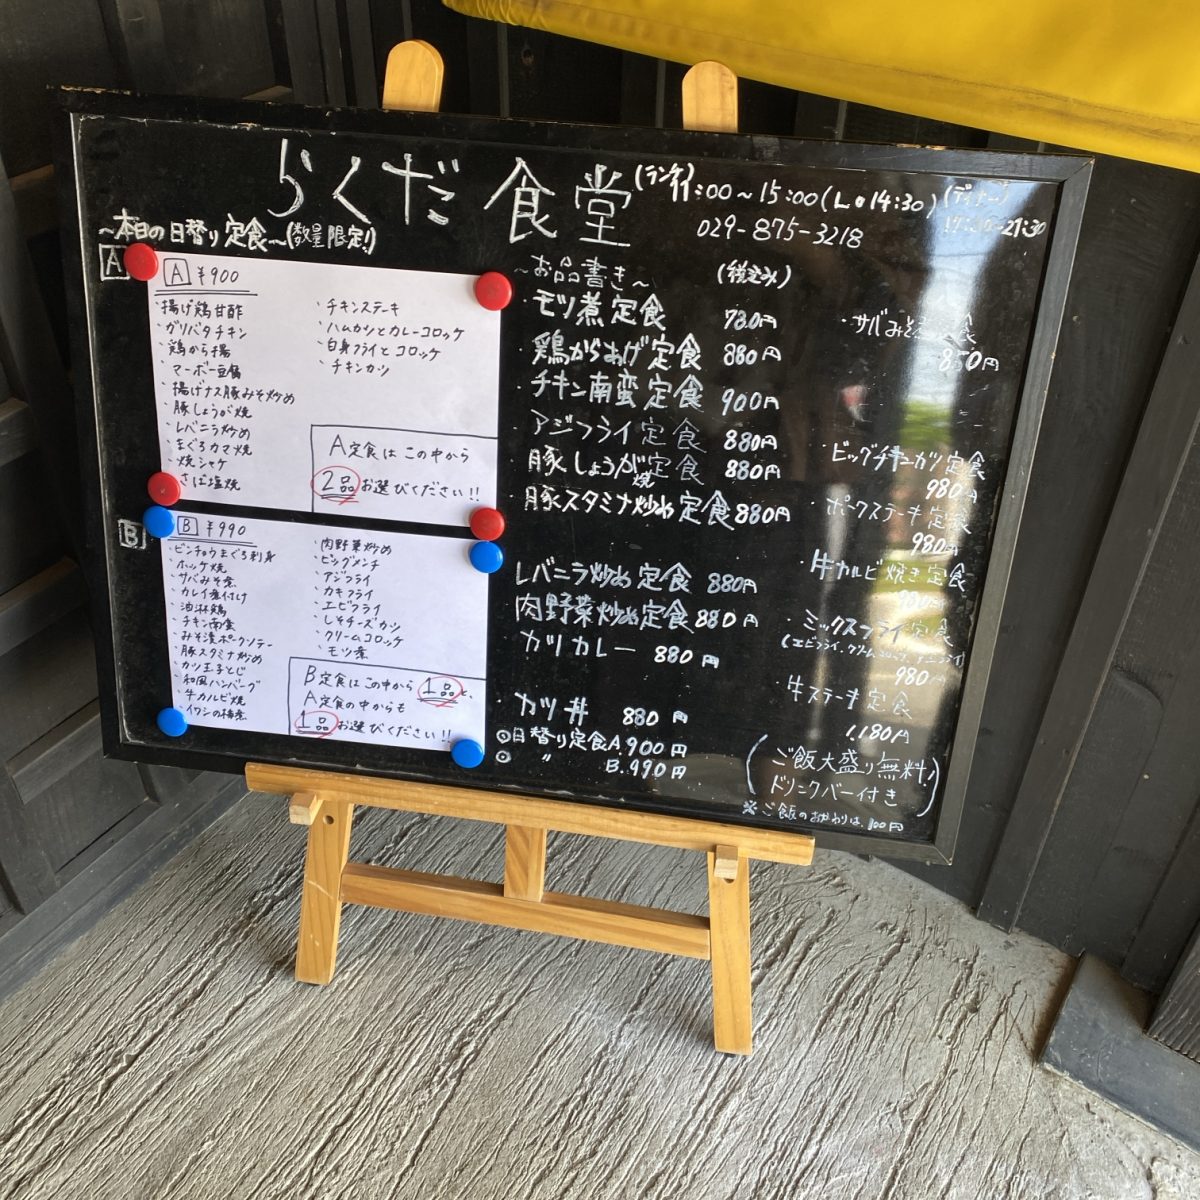 らくだ食堂
(ランチ) :00～15:00(L.o 14:30)(ディナー)
029-875-3218
～本日の日替り定食～(数量限定!)
A
A ¥900
・揚げ鶏甘酢
・ガリバタチキン
・鶏から揚
・マーボー豆腐
・揚げナス豚みそ炒め
・豚しょうが焼
・レバニラ炒め
・まぐろカマ焼
・焼シャケ
・さば塩焼
・チキンステーキ
・ハムカツとカレーコロッケ
・白身フライとコロッケ
・チキンカツ
A定食はこの中から
2品お選びください!!
B
B ¥990
・ビンチョウまぐろ刺身
・ホッケ焼
・サバみそ煮
・カレイ煮付け
・油淋鶏
・チキン南蛮
・みそ漬ポークソテー
・豚スタミナ炒め
・カツ玉子とじ
・和風ハンバーグ
・牛カルビ焼
・イワシの梅煮
・肉野菜炒め
・ビッグメンチ
・アジフライ
・カキフライ
・エビフライ
・しそチーズカツ
・クリームコロッケ
・モツ煮
B定食はこの中から1品と、
A定食の中からも
1品お選びください!!
～お品書き～ (税込み)
・モツ煮定食 780円
・鶏からあげ定食 880円
・チキン南蛮定食 900円
・アジフライ定食 880円
・豚しょうが焼定食 880円
・豚スタミナ炒め定食 880円
・レバニラ炒め定食 880円
・肉野菜炒め定食 880円
・カツカレー 880円
・カツ丼 880円
◎日替り定食A.900円
◎ 〃 B.990円
・サバみそ煮定食
850円
・ビッグチキンカツ定食
980円
・ポークステーキ定食
980円
・牛カルビ焼き定食
980円
・ミックスフライ定食
980円
・牛ステーキ定食
1,180円
(ご飯大盛り無料!
ドリンクバー付き)
※ご飯のおかわりは、100円